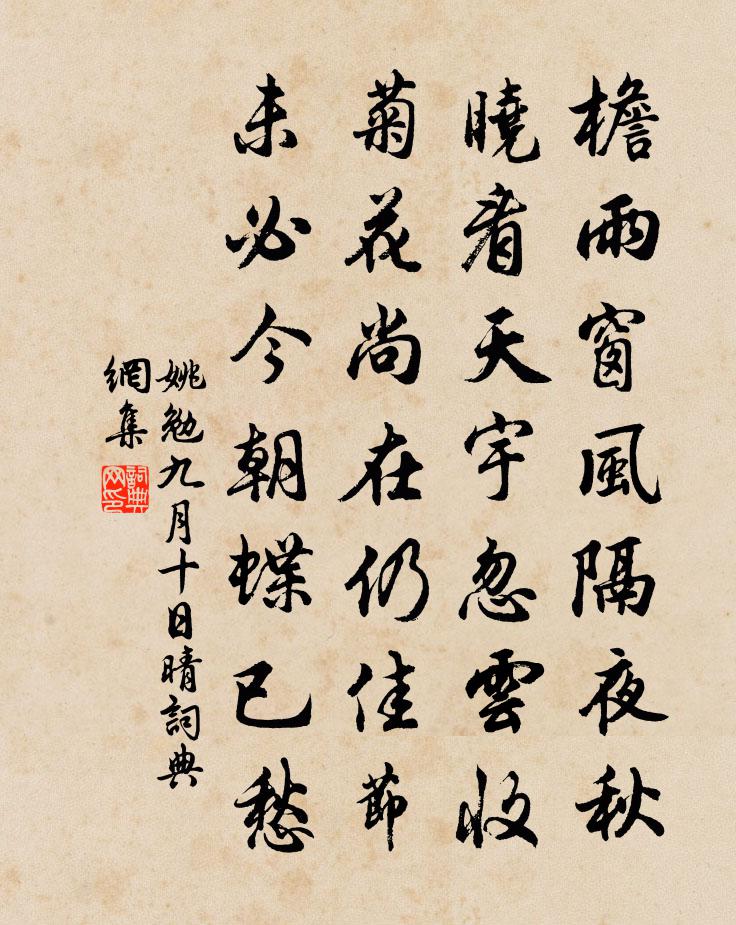 檐雨窗風隔夜秋
曉看天宇忽雲收
菊花尚在仍佳節
未必今朝蝶已愁
姚勉九月十日晴詞典
網集
詞典
网印